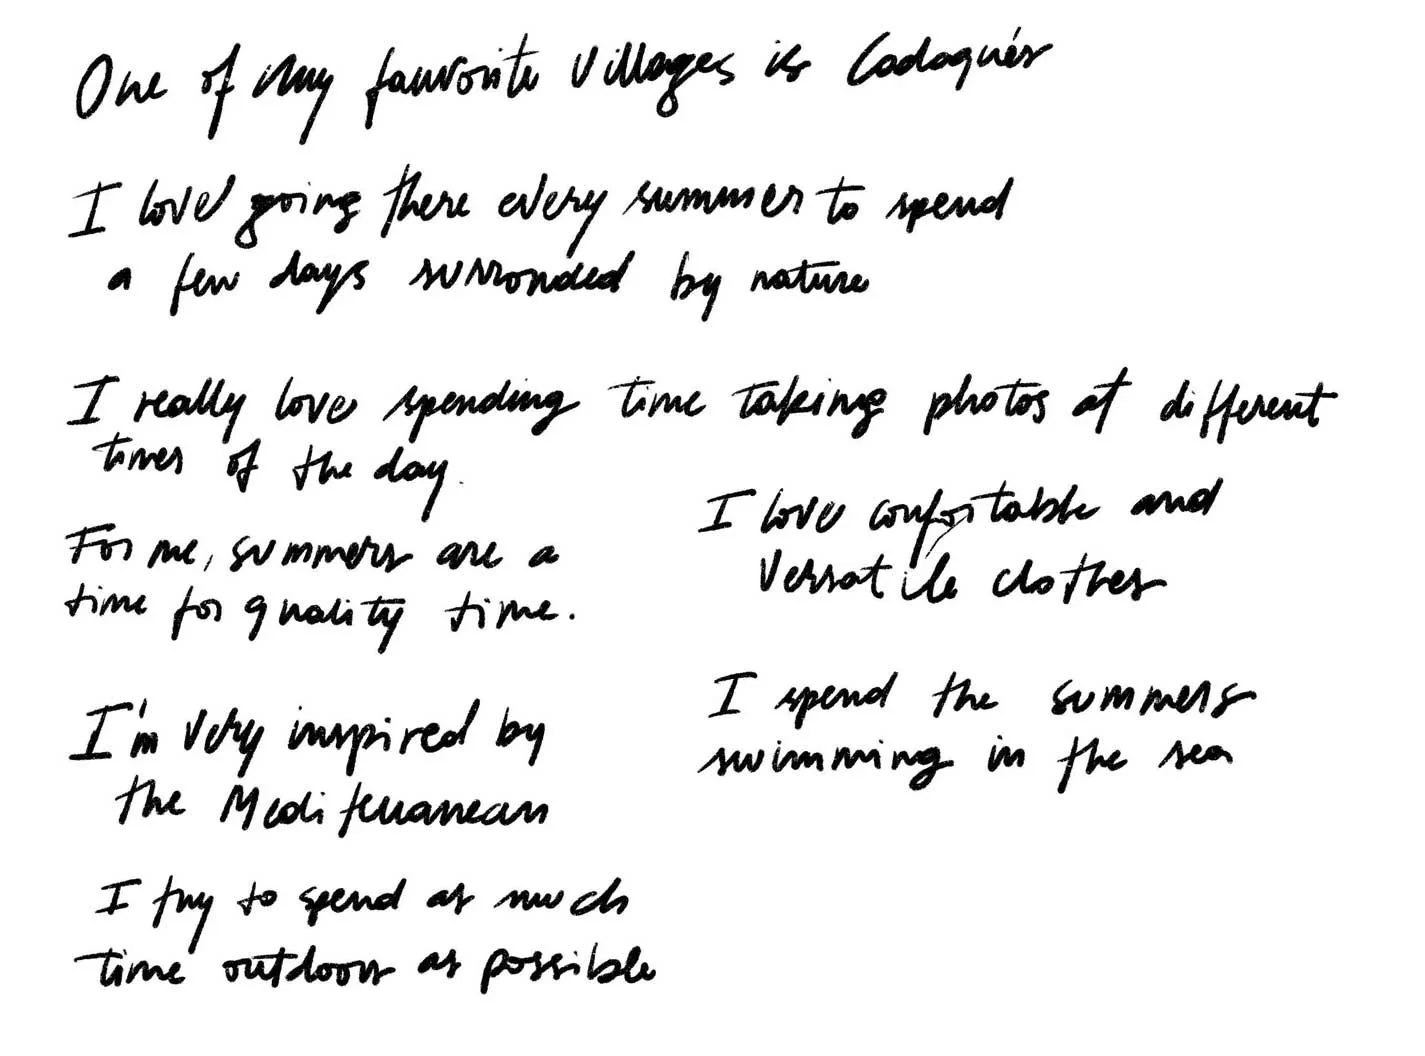 One of my favorite villages is Cadaqués
I love going there every summer to spend
a few days surronded by nature
I really love spending time taking photos at different
times of the day.
For me, summers are a
time for quality time.
I love confortable and
versatile clothes
I'm very inspired by
the Mediterranean
I spend the summers
swimming in the sea
I try to spend as much
time outdoors as possible